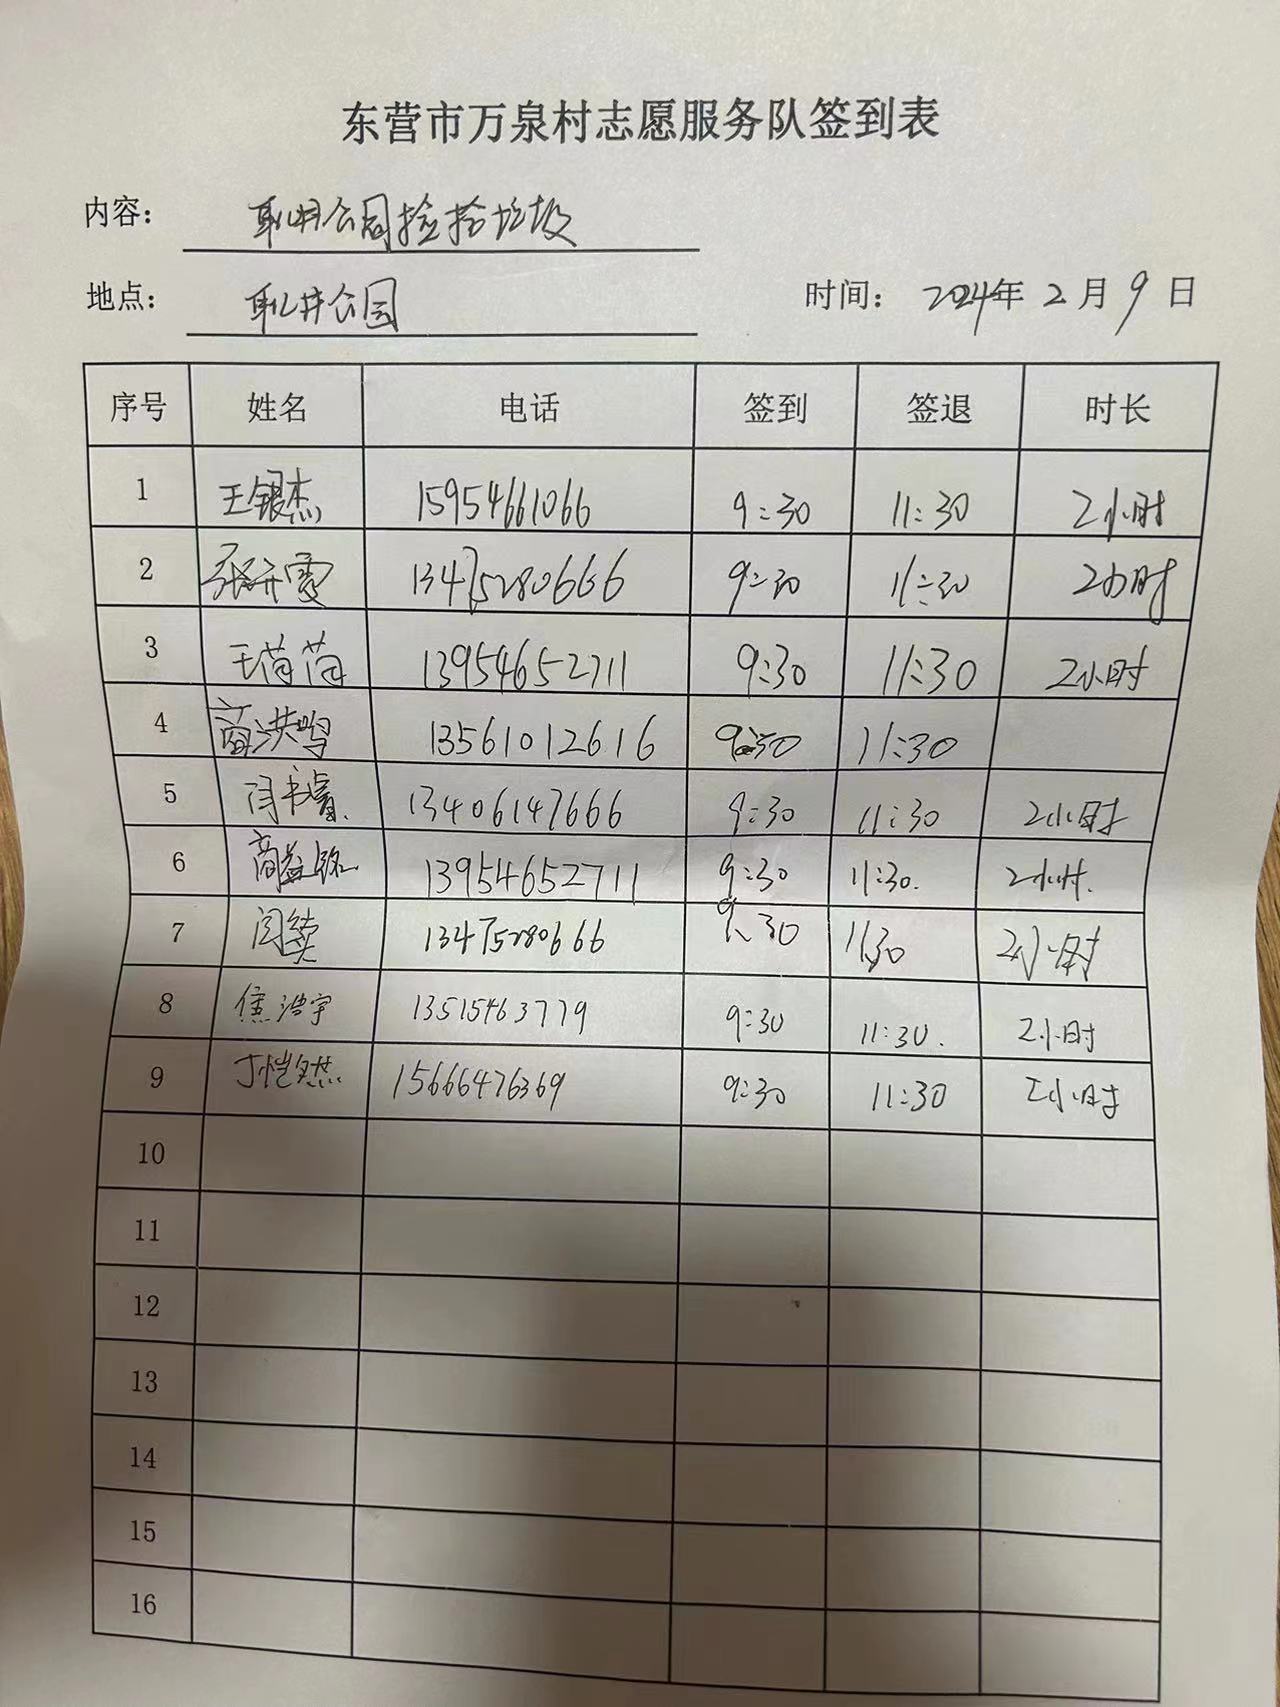 东营市万泉村志愿服务队签到表
内容： 耿井公园捡拾垃圾
地点： 耿井公园 时间： 2024年 2 月 9 日
序号 姓名 电话 签到 签退 时长
1 王银杰 15954661066 9:30 11:30 2小时
2 13475280666 9:30 11:30 2小时
3 王苘苘 13954652711 9:30 11:30 2小时
4 商洪鸣 13561012616 9:30 11:30
5 闫书睿 13406147666 9:30 11:30 2小时
6 商益铭 13954652711 9:30 11:30. 2小时.
7 闫续 13475280666 9:30 11:30 2小时
8 焦浩宇 13515463779 9:30 11:30. 2小时
9 丁恺然 15666476369 9:30 11:30 2小时
10
11
12
13
14
15
16